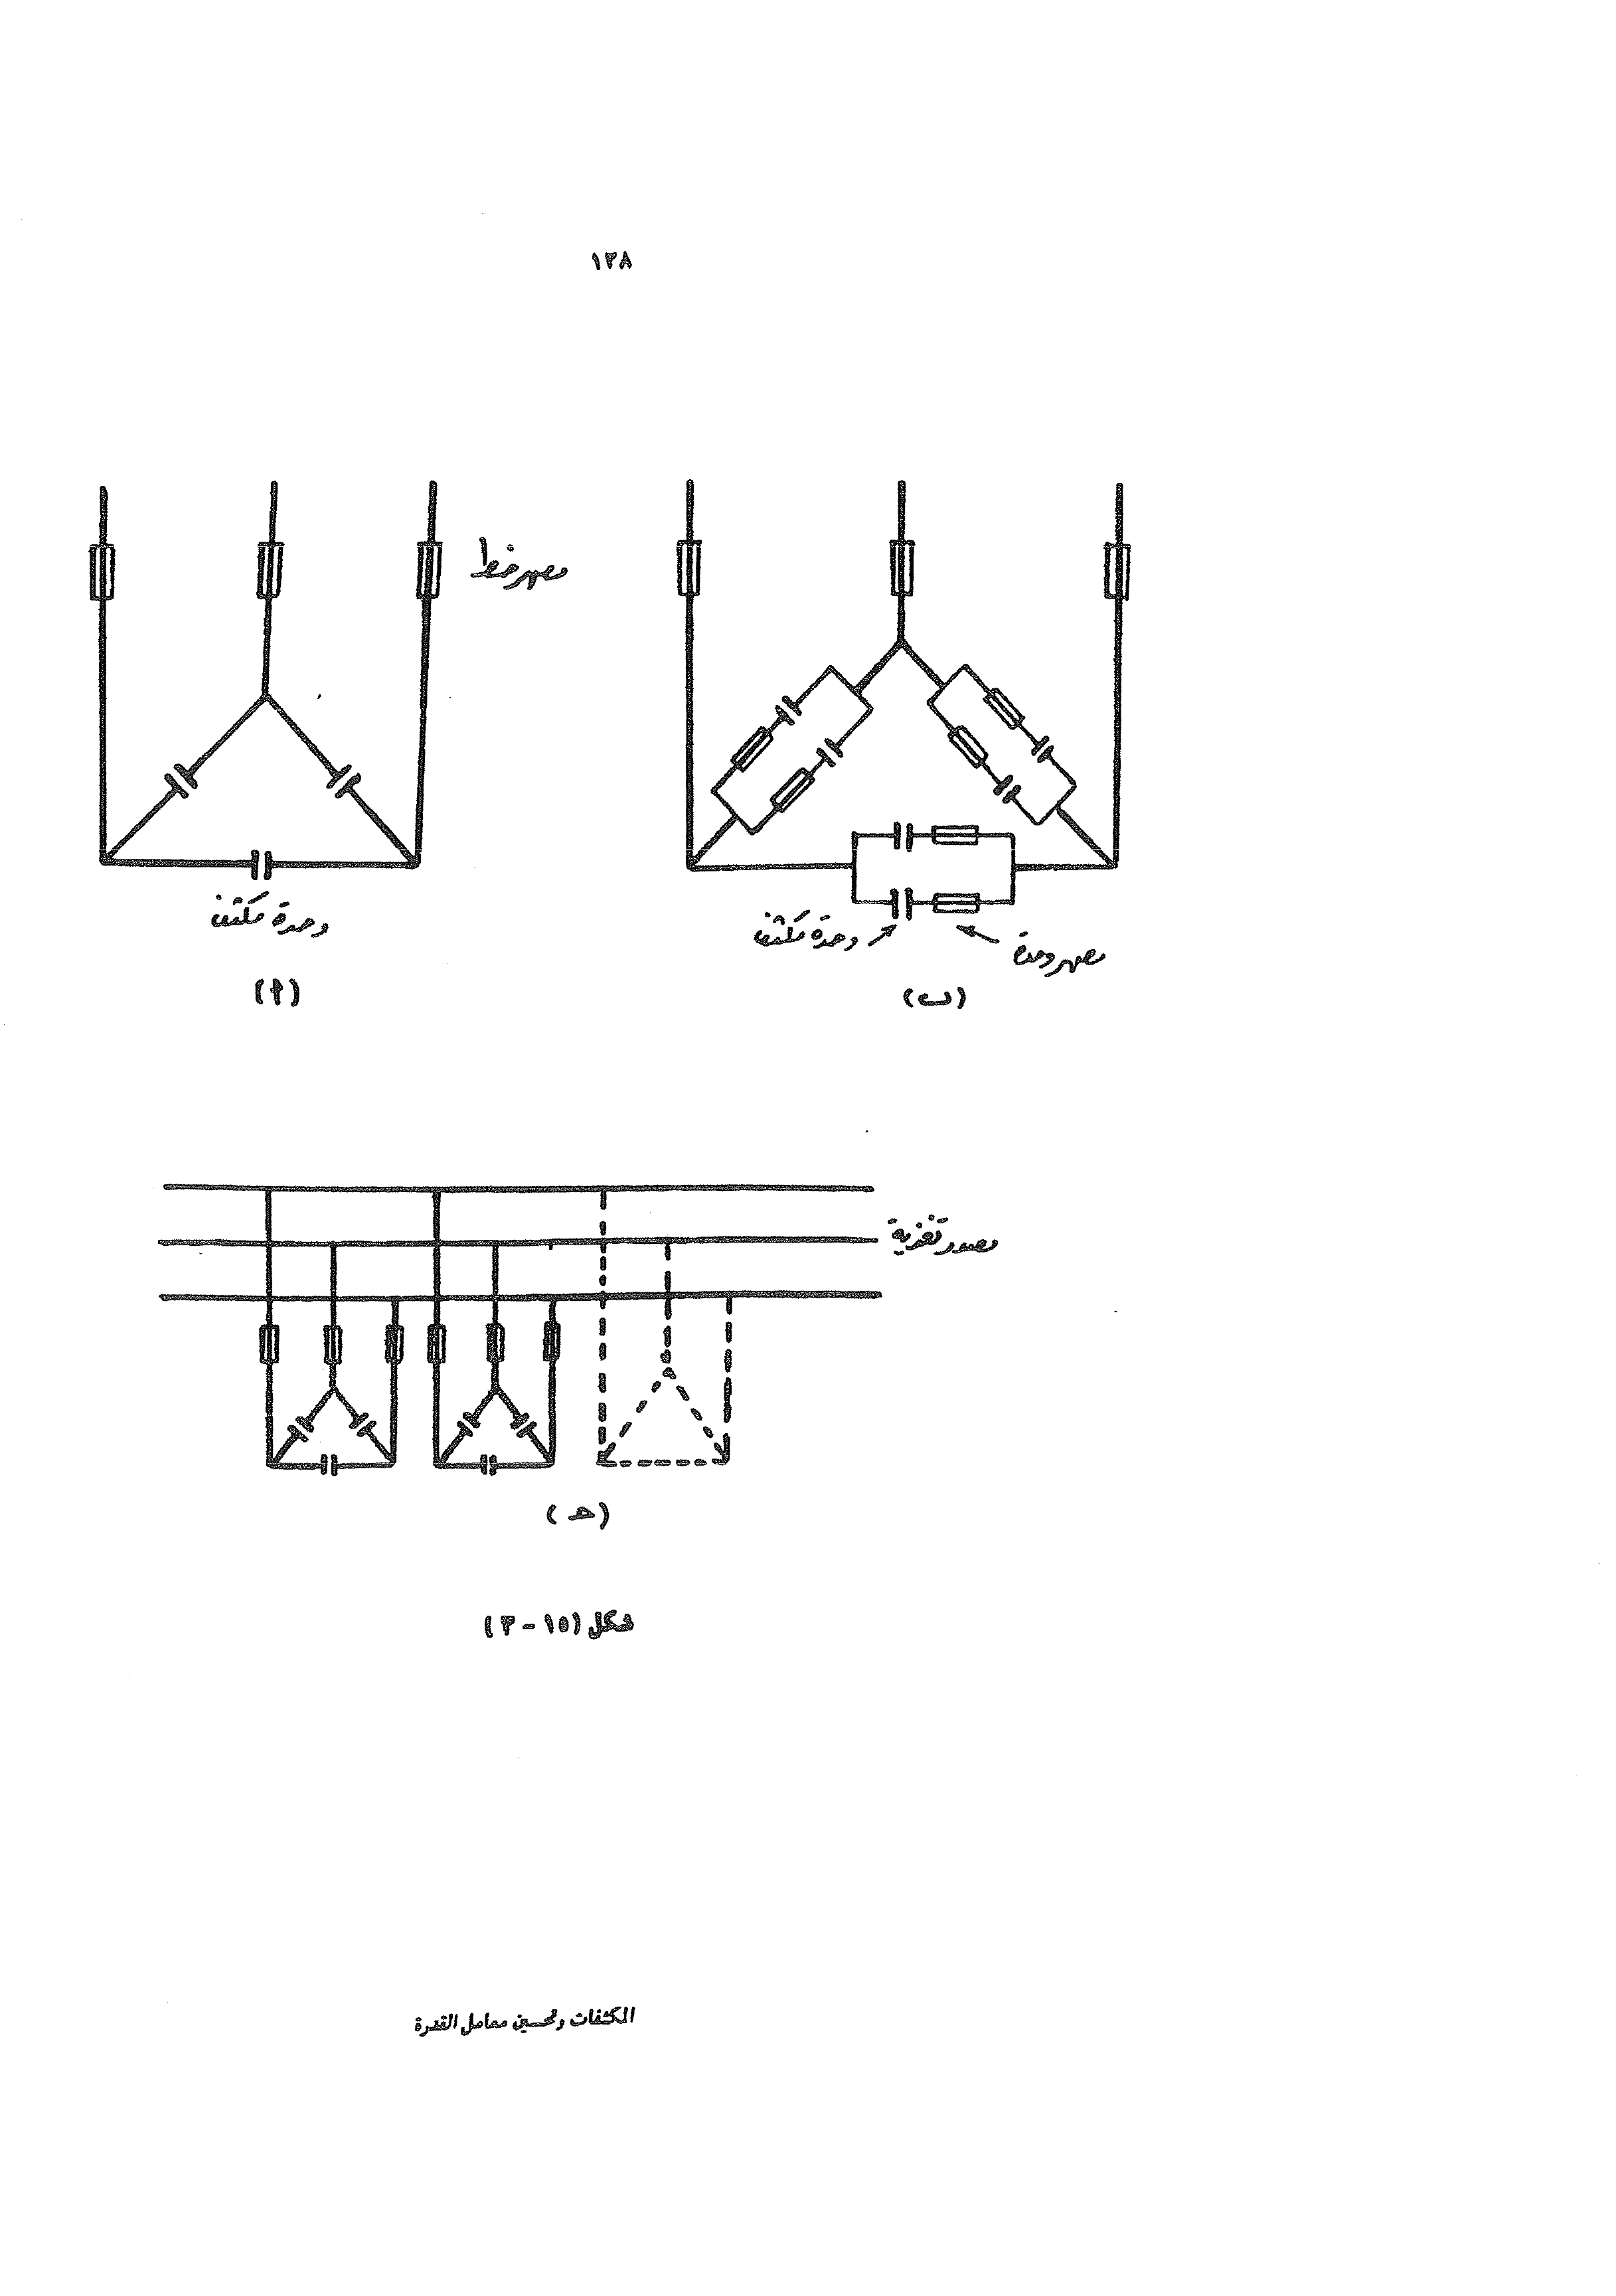 ١٣٨
مصهر خط
وحدة مكثف
(أ)
وحدة مكثف
مصهر وحدة
(ب)
مصدر تغذية
(حـ)
شكل (١٥ - ٣)
المكثفات وتحسين معامل القدرة